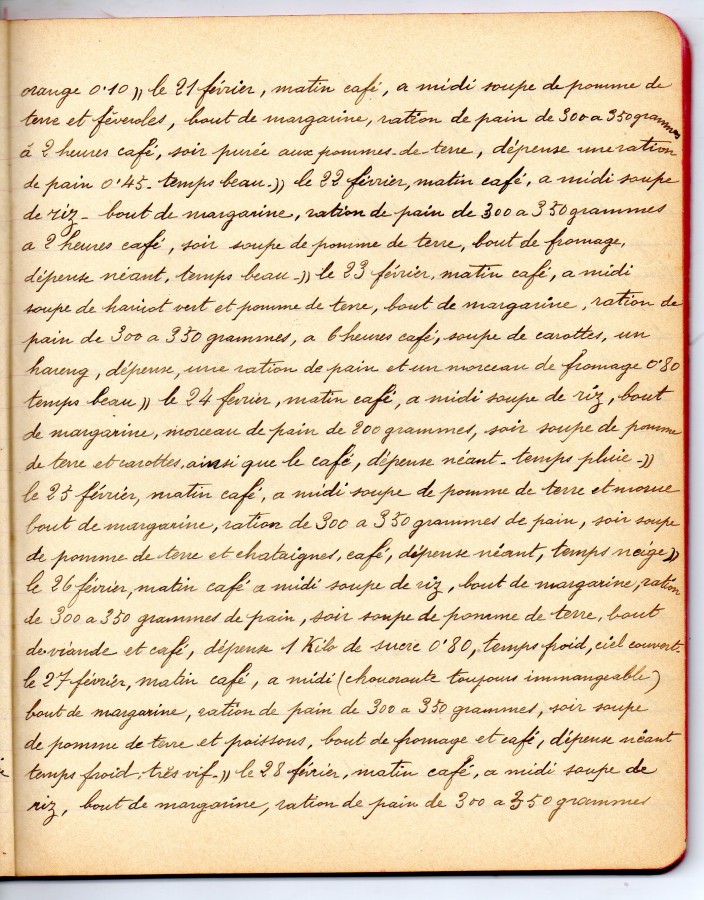 orange 0'10 )) le 21 février, matin café, a midi soupe de pomme de
terre et féveroles, bout de margarine, ration de pain de 300 a 350 grammes
à 2 heures café, soir purée aux pommes-de-terre, dépense une ration
de pain 0'45 - temps beau - )) le 22 février, matin café, a midi soupe
de riz - bout de margarine, ration de pain de 300 a 350 grammes
a 2 heures café, soir soupe de pomme de terre, bout de fromage,
dépense néant, temps beau - )) le 23 février, matin café, a midi
soupe de haricot vert et pomme de terre, bout de margarine, ration de
pain de 300 a 350 grammes, a 6 heures café, soupe de carottes, un
hareng, dépense, une ration de pain et un morceau de fromage 0'80
temps beau )) le 24 fevrier, matin café, a midi soupe de riz, bout
de margarine, morceau de pain de 200 grammes, soir soupe de pomme
de terre et carottes, ainsi que le café, dépense néant - temps pluie - ))
le 25 février, matin café, a midi soupe de pomme de terre et morue
bout de margarine, ration de 300 a 350 grammes de pain, soir soupe
de pomme de terre et chataignes, café, dépense néant, temps neige ))
le 26 février, matin café a midi soupe de riz, bout de margarine, ration
de 300 a 350 grammes de pain, soir soupe de pomme de terre, bout
de viande et café, dépense 1 Kilo de sucre 0'80, temps froid, ciel couvert -
le 27 février, matin café, a midi (choucroute toujours immangeable)
bout de margarine, ration de pain de 300 a 350 grammes, soir soupe
de pomme de terre et poissons, bout de fromage et café, dépense néant
temps froid, très vif - )) le 28 février, matin café, a midi soupe de
riz, bout de margarine, ration de pain de 300 a 350 grammes